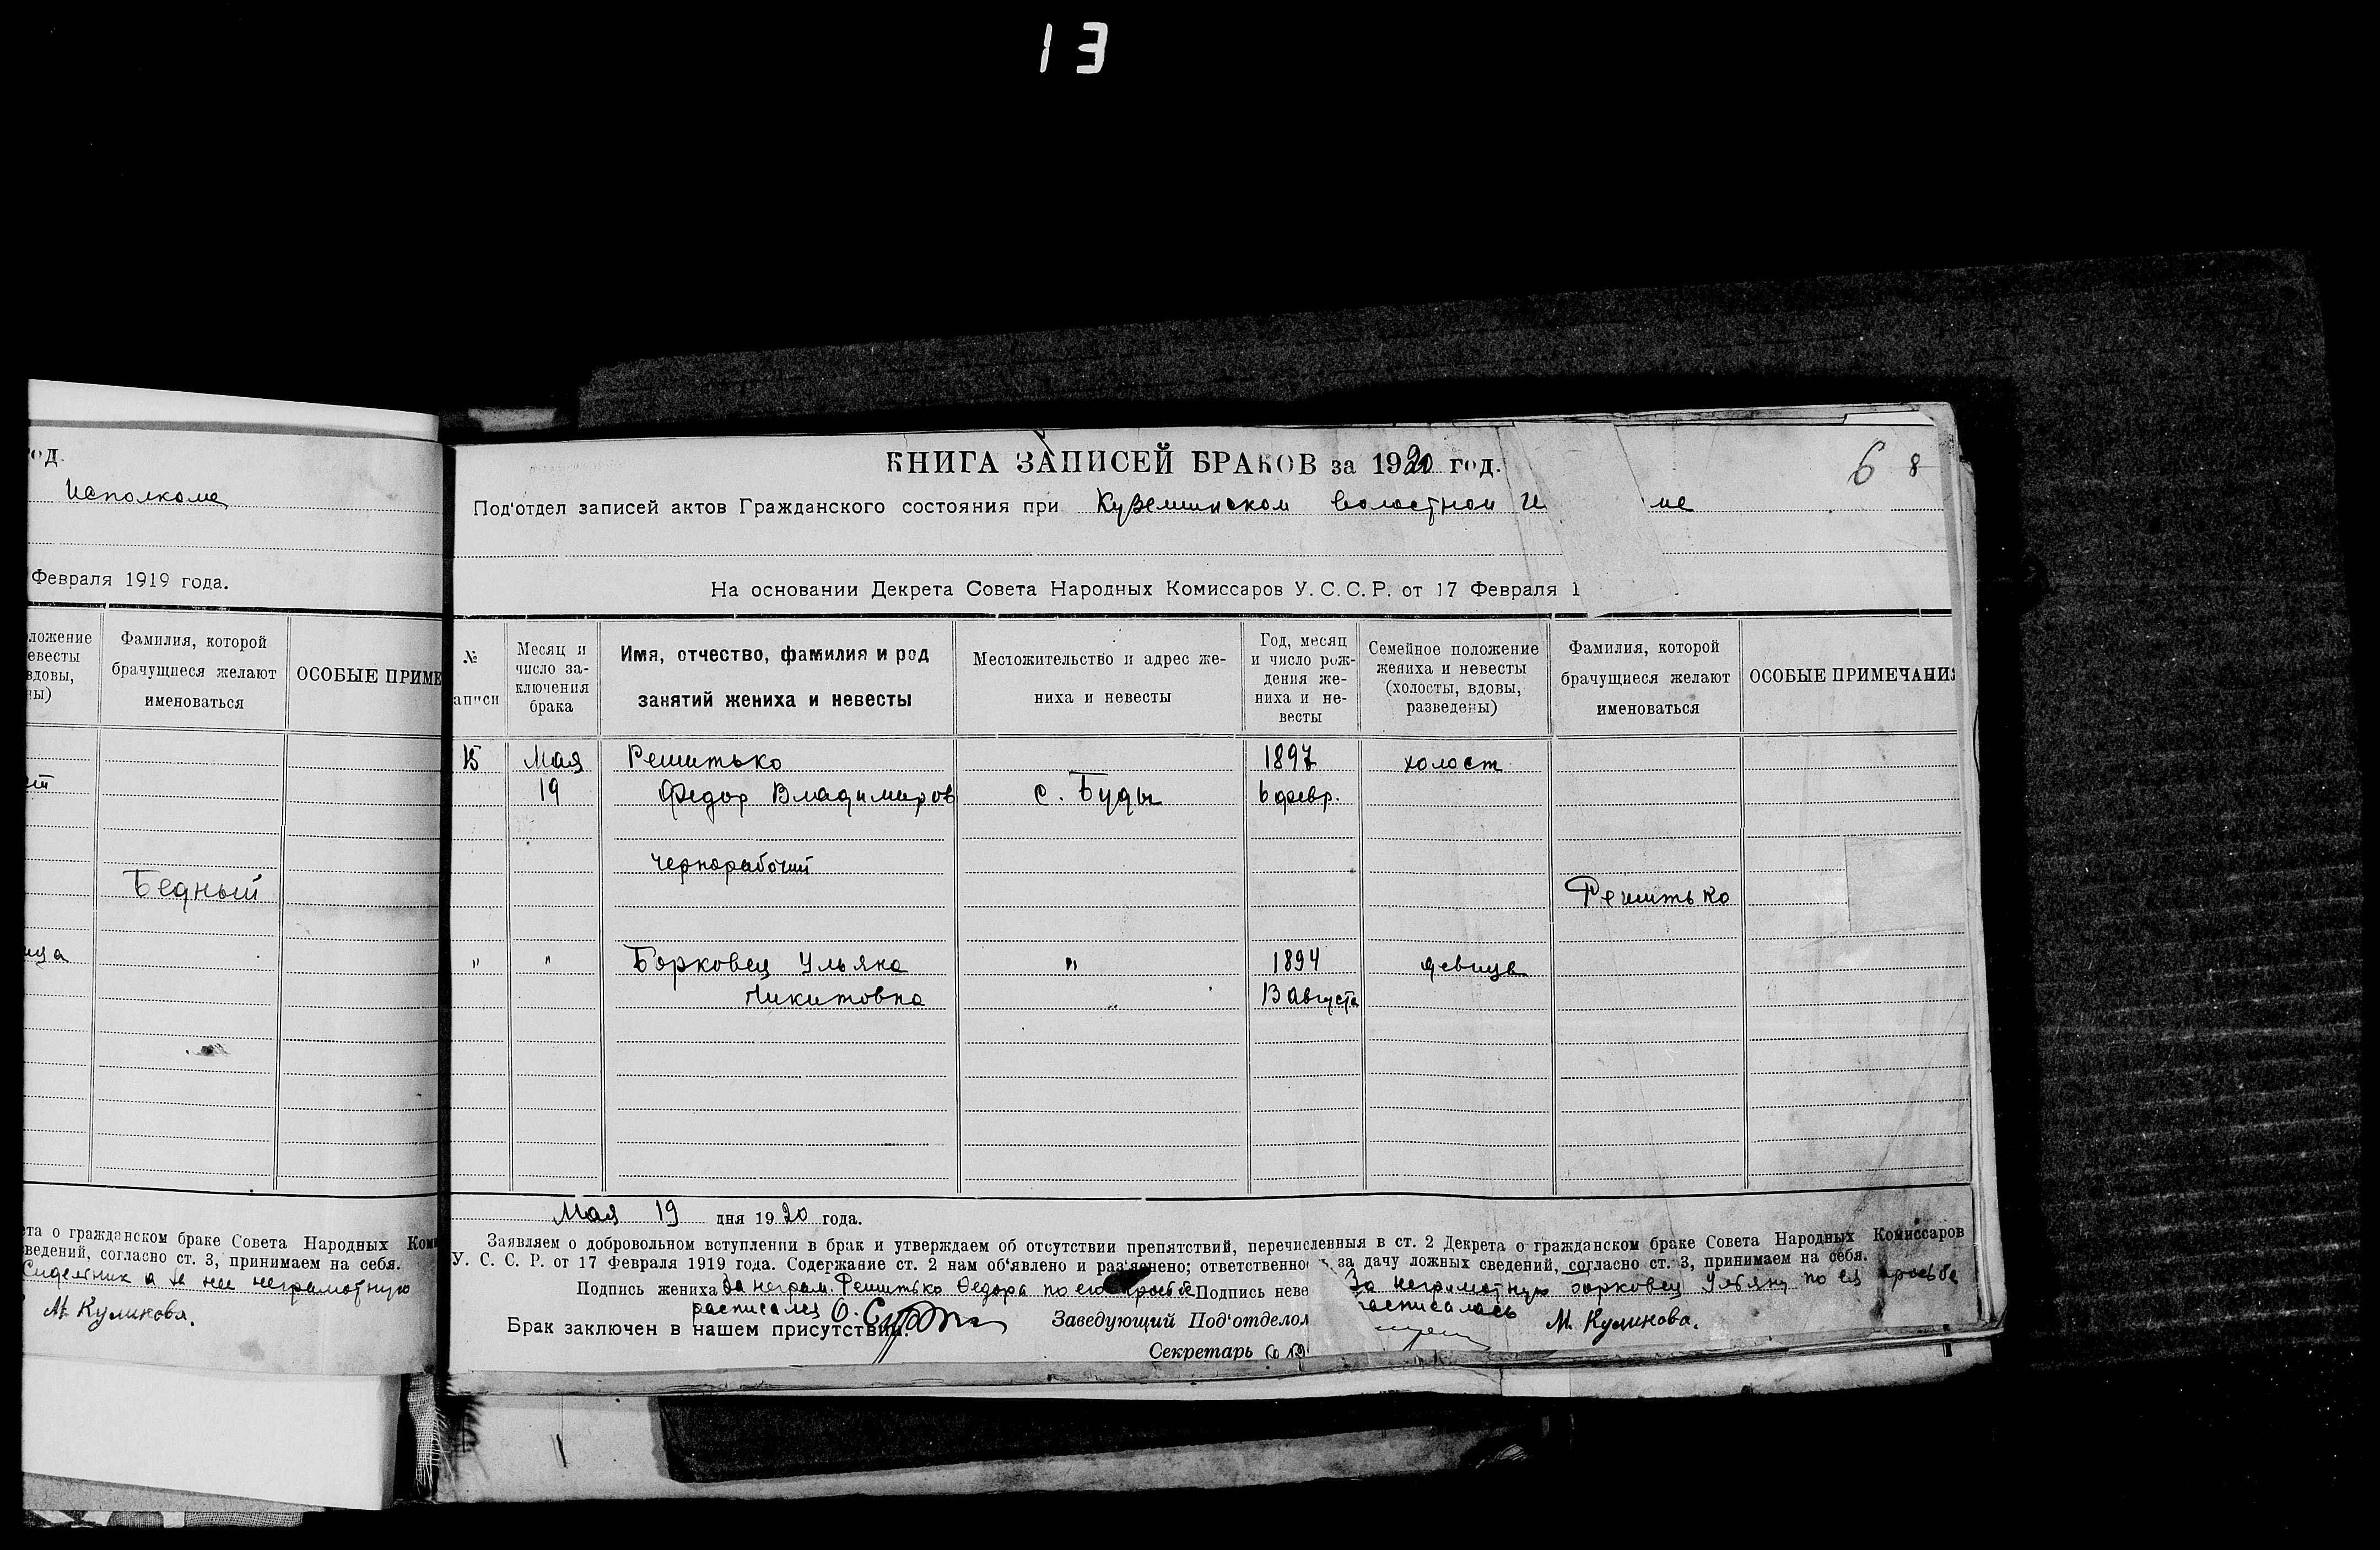 13
од.
Исполкоме
Февраля 1919 года.
ложение
евесты
вдовы,
ны)
Фамилия, которой
брачущиеся желают
именоваться
ОСОБЫЕ ПРИМЕ
Бедный
ица
ета о гражданском браке Совета Народных Коми
ведений, согласно ст. 3, принимаем на себя.
неграмотную
М. Куликова.
КНИГА ЗАПИСЕЙ БРАКОВ за 1920 год.
6 8
Под'отдел записей актов Гражданского состояния при Куземинском волостном И ме
На основании Декрета Совета Народных Комиссаров У. С. С. Р. от 17 Февраля 1
№
аписи
Месяц и
число за-
ключения
брака
Имя, отчество, фамилия и род
занятий жениха и невесты
Местожительство и адрес же-
ниха и невесты
Год, месяц
и число рож-
дения же-
ниха и не-
весты
Семейное положение
жениха и невесты
(холосты, вдовы,
разведены)
Фамилия, которой
брачущиеся желают
именоваться
ОСОБЫЕ ПРИМЕЧАНИЯ
15 Мая Решитько 1897 холост
19 Федор Владимиров с. Буды 6 февр.
Чернорабочий
Решитько
" " Борковец Ульяна " 1894 девица
Никитовна " 13 августа
Мая 19 дня 1920 года.
Заявляем о добровольном вступлении в брак и утверждаем об отсутствии препятствий, перечисленныя в ст. 2 Декрета о гражданском браке Совета Народных Комиссаров
У. С. С. Р. от 17 Февраля 1919 года. Содержание ст. 2 нам об'явлено и раз'яснено; ответственнос за дачу ложных сведений, согласно ст. 3, принимаем на себя.
Подпись жениха За неграм. Решитько Федора по его просьбе Подпись неве За неграмотную Борковец Ульяну по ея просьбе
расписался расписалась
М. Куликова.
Брак заключен в нашем присутствии. Заведующий Под'отделом
Секретарь